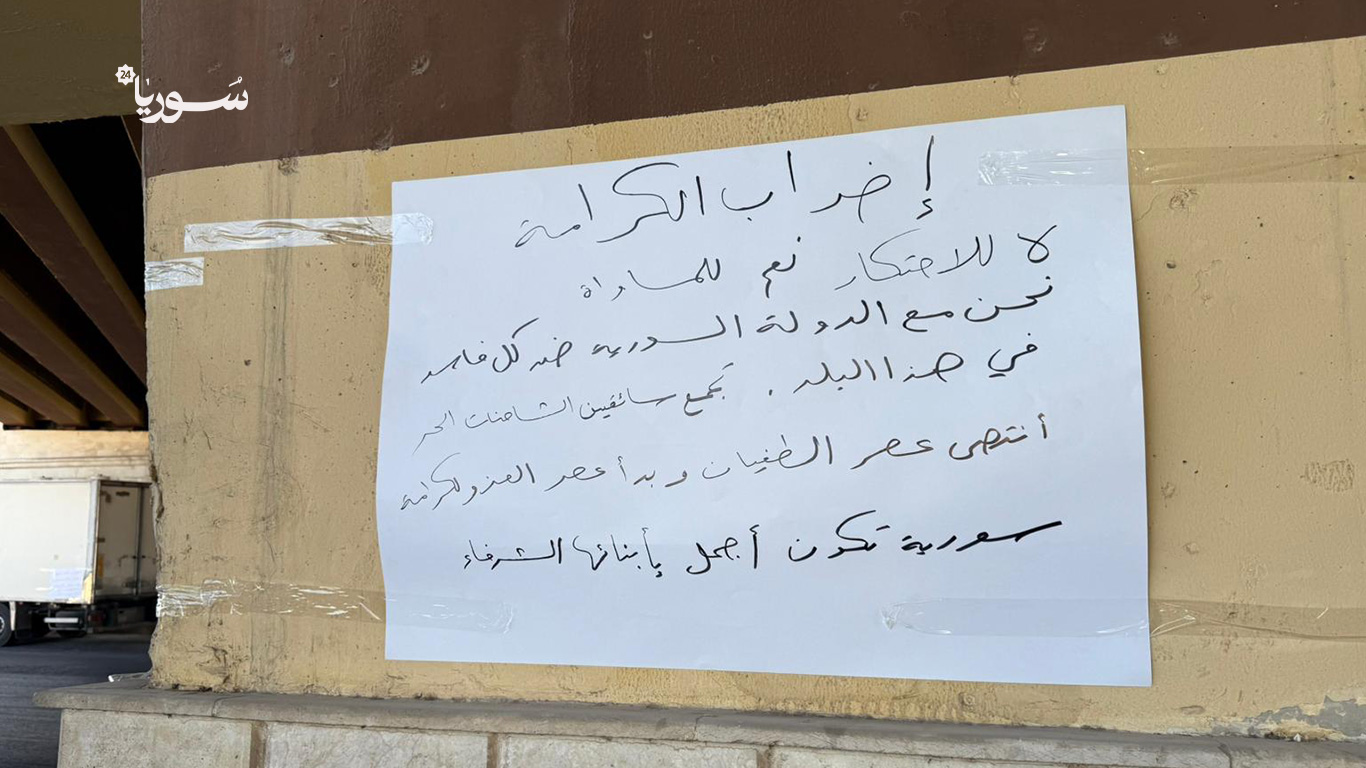 سوريا 24
إضراب الكرامة
لا للاحتكار نعم للمساواة
نحن مع الدولة السورية ضد كل فاسد
في هذا البلد . تجمع سائقين الشاحنات الحر
أنتهى عصر الطغيان وبدأ عصر العز والكرامة
سورية تكون أجمل بأبنائها الشرفاء